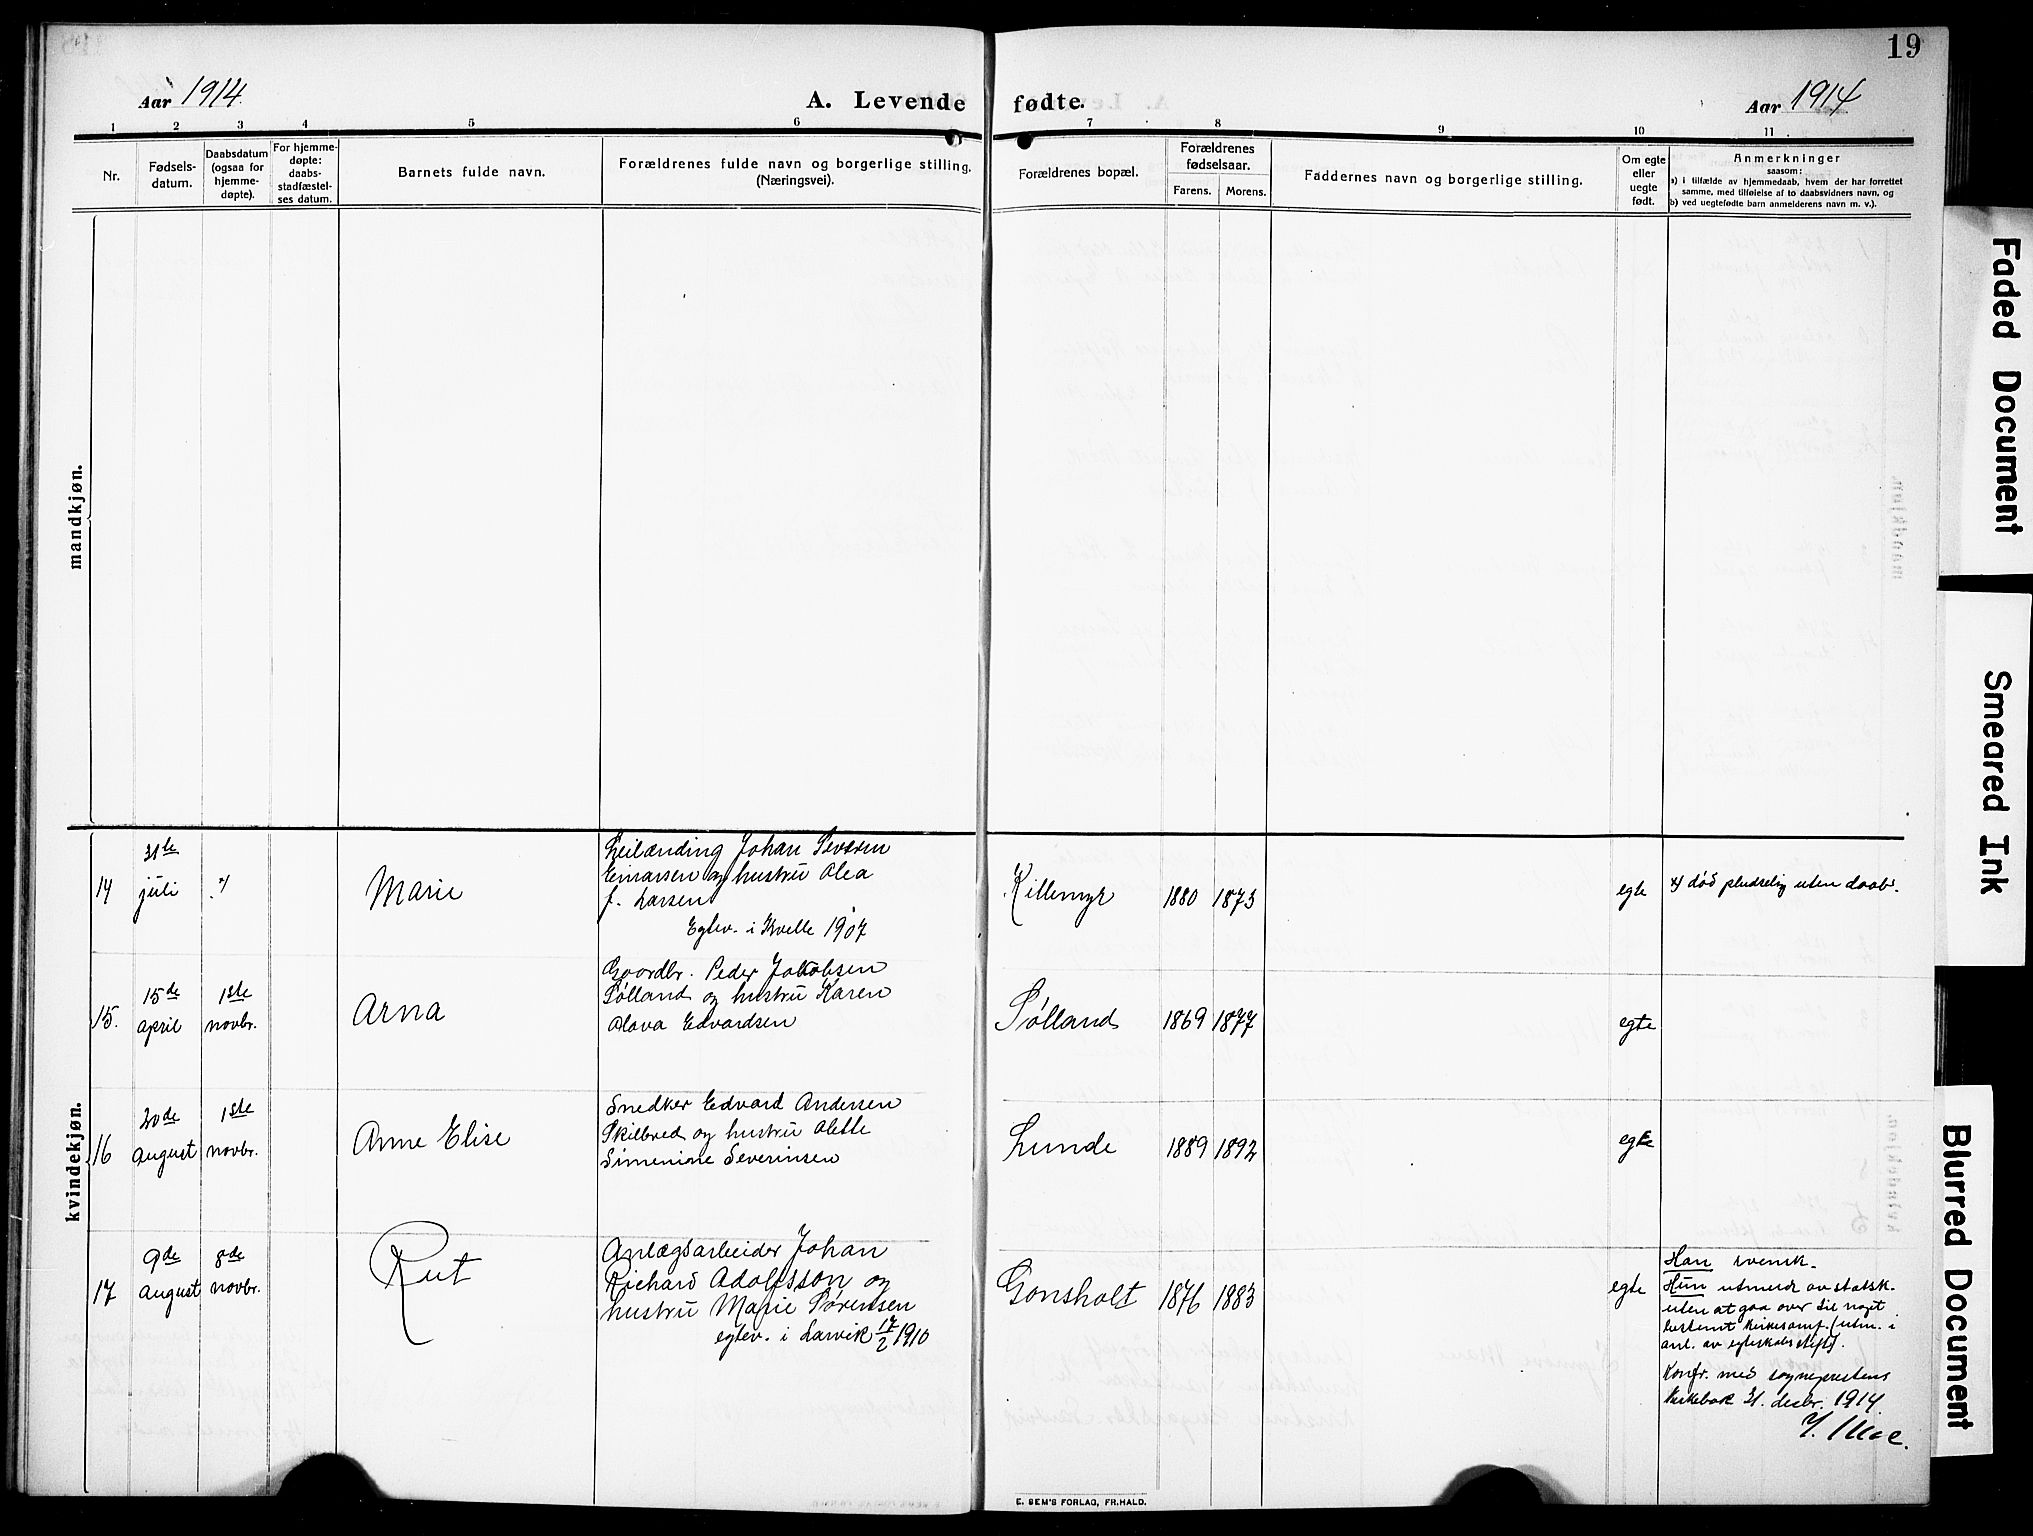 19
Aar 1914.
A. Levende fødte.
Aar 1914
1 2 3 4 5 6 7 8 9 10 11
Nr.
Fødsels-
datum.
Daabsdatum
(ogsaa for
hjemme-
døpte).
For hjemme-
døpte:
daabs-
stadfæstel-
ses datum.
Barnets fulde navn.
Forældrenes fulde navn og borgerlige stilling.
(Næringsvei).
Forældrenes bopæl.
Forældrenes
fødselsaar.
Farens. Morens.
Faddernes navn og borgerlige stilling.
Om egte
eller
uegte
født.
Anmerkninger
saasom:
a) i tilfælde av hjemmedaab, hvem der har forrettet
samme, med tilføielse af to daabsvidners navn, og
b) ved uegtefødte barn anmelderens navn m. v.).
mandkjøn.
kvindekjøn.
14
31te
juli
x)
Marie
Leilænding Johan Severin
Einarsen og hustru Olea
f. Larsen
Egtev. i Kvelle 1907
Killemyr
1880 1873
egte
x) død pludselig uten daab.
15.
15de
april
1ste
novbr.
Arna
Gaardbr. Peder Jakobsen
Sølland og hustru Karen
Olava Edvardsen
Sølland
1869 1877
egte
16
20de
august
1ste
novbr.
Anne Elise
Snedker Edvard Andersen
Skilbred og hustru Alette
Simenine Severinsen
Lunde
1889 1892
egte
17
9de
august
8de
novbr.
Rut
Anlægsarbeider Johan
Richard Adolfsson og
hustru Marie Sørensen
egtev. i Larvik 17/2 1910
Gonsholt
1876 1883
egte
Han svensk.
Hun utmeldt av statsk.
uten at gaa over til noget
bestemt kirkesamf. (utm. i
anl. av egteskabsstift).
Konfr. med sogneprestens
kirkebok 31. desbr. 1914.
E. SEM'S FORLAG, FR.HALD.
Faded Document
Smeared Ink
Blurred Document